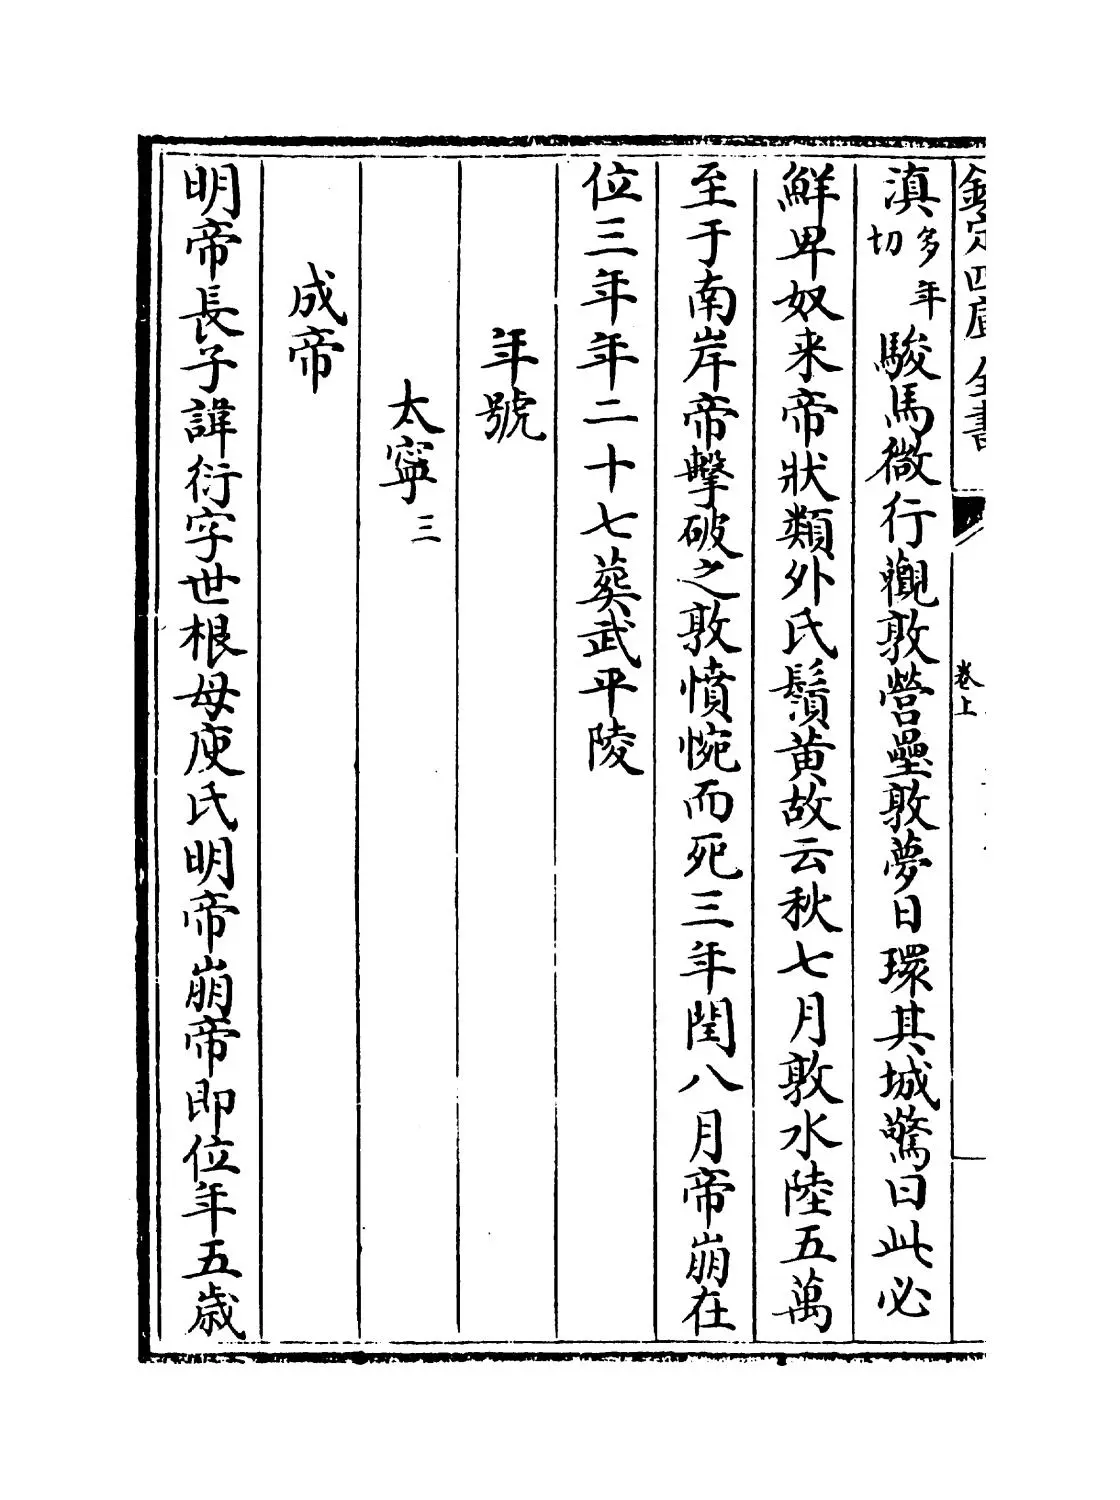 欽定四庫全書
卷上
滇多年切駿馬微行觀敦營壘敦夢日環其城驚曰此必
鮮卑奴来帝狀類外氏鬚黄故云秋七月敦水陸五萬
至于南岸帝擊破之敦憤惋而死三年閏八月帝崩在
位三年年二十七葬武平陵
年號
太寧三
成帝
明帝長子諱衍字世根母庾氏明帝崩帝即位年五歳